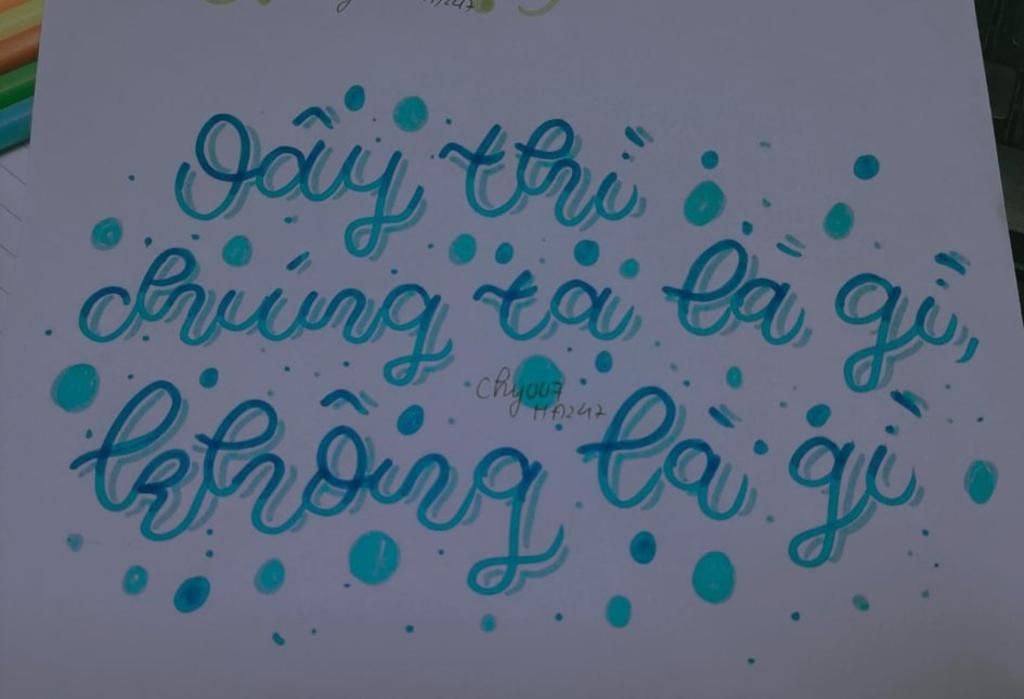 Vây thì
chúng ta là gì,
Chyou7
HA247
không là gì